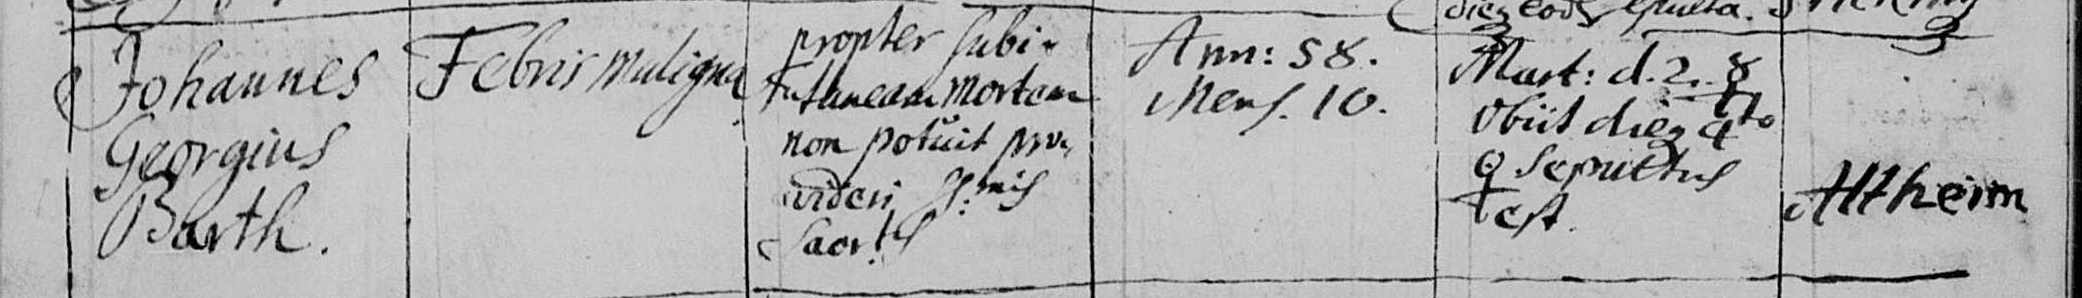 Johannes
Georgius
Barth.
Febris maligna
propter subi-
taneam mortem
non potuit pro-
videri S:mis
Sacr:tis
Ann: 58.
Mens. 10.
Mart: d. 2.
obiit die 4to
♀ sepultus
est.
Altheim